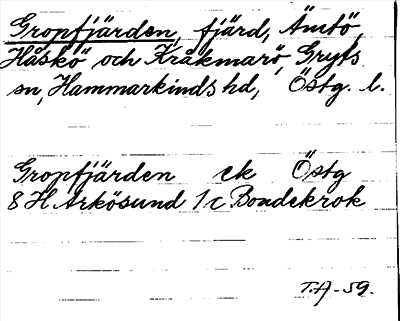 Gropfjärden, fjärd, Ämtö,
Håskö och Kråkmarö, Gryts
sn, Hammarkinds hd, Östg. l.
Gropfjärden ek Östg
8 H Arkösund 1 c Bondekrok
T.A-59.